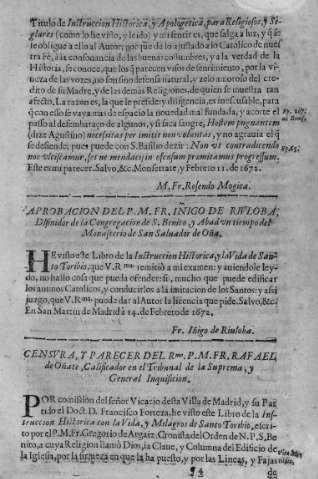 Titulo de Instruccion Historica, y Apologetica, para Religiosos, y Se-
glares (como lo he visto, y leido) y mi sentir es, que salga a luz, y q̃ se
le obligue a ello al Autor; porque de lo ajustado a lo Catolico de nuestra
Fè, à la consonancia de las buenas costumbres, y a la verdad de la
Historia, se conoce, que los q̃ parecen visos de sentimiento, por la vi-
veza de las vozes, no son sino defensa natural, y zelo amoroso del cre-
dito de su Madre, y de las demas Religiones, de quien se muestra tan
afecto. La razon es, la que le preside; y diligencia, es inescusable, para
q̃ con esso se vaya mas de espacio la novedad mal fundada, y acorte el
passo al desembaraço de algunos, y si saca sangre, Hostem pugnantem
(dize Agustino) necessitas perimit non voluntas, y no agravia el q̃
se defiende; pues puede con S. Basilio dezir: Non vt contradicendo
nos vlciscamur, sed ne mendacijs in offensum promittamus progressum.
Este es mi parecer. Salvo, &c. Monserrate, y Febrero 11. de 1672.
M. Fr. Rosendo Mogica.
APROBACION DEL P. M. FR. IÑIGO DE RIVLOBA,
Difinidor de la Congregacion de S. Benito, y Abad vn tiempo del
Monasterio de San Salvador de Oña.
HE visto este Libro de la Instruccion Historica, y la Vida de San-
to Toribio, que V. Rma remitiò a mi examen: y aviendole ley-
do, no hallo cosa que pueda ofender: si, mucho que puede edificar
los animos Catolicos, y conducirlos a la imitacion de los Santos: y assi
juzgo, que V. Rma puede dar al Autor la licencia que pide. Salvo, &c.
En San Martin de Madrid à 14. de Febrero de 1672.
Fr. Iñigo de Riuloba.
CENSVRA, Y PARECER DEL Rmo. P. M. FR. RAFAEL
de Oñate, Calificador en el Tribunal de la Suprema, y
General Inquisicion.
POR comission del señor Vicario desta Villa de Madrid, y su Par-
tido el Doct. D. Francisco Forteza, he visto este Libro de la Ins-
truccion Historica con la Vida, y Milagros de Santo Toribio, escri-
to por el P. M. Fr. Gregorio de Argaiz, Cronista del Orden de N. P. S. Be-
nito, a cuya Religion llamò Dios, la Clave, y Columna del Edificio de
la Iglesia, por la firmeza en que la ha puesto, y por las Lineas, y Fajas
de